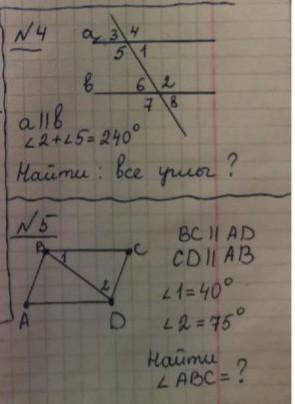 №4
a 3 4
5 1
b 6 2
7 8
a||b
∠2+∠5=240°
Найти: все углы?
№5
B C
1
2
A D
BC||AD
CD||AB
∠1=40°
∠2=75°
Найти
∠ABC=?